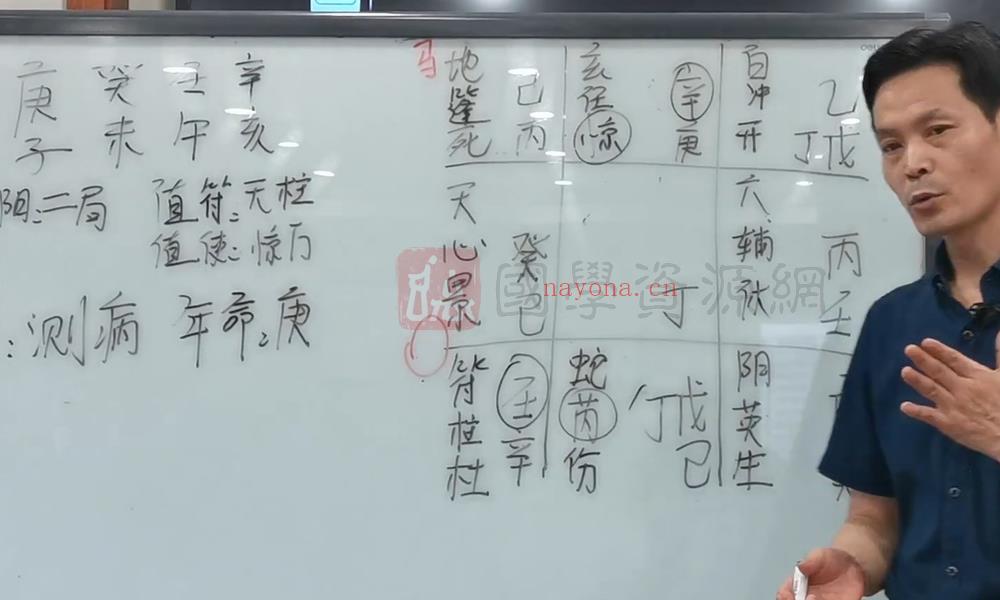 庚 癸 壬 辛
子 未 午 亥
阴:二局 值符:天柱
值使:惊门
:测病 年命:庚
马
地 己
蓬 丙
死
玄 辛
任 庚
惊
白 乙
冲 丁戊
开
天
心 癸
景 己
丁
六 丙
辅 壬
符 壬
柱 辛
杜
蛇
芮 丁戊
伤 己
阴
英
生
國學資源網
nayona.cn